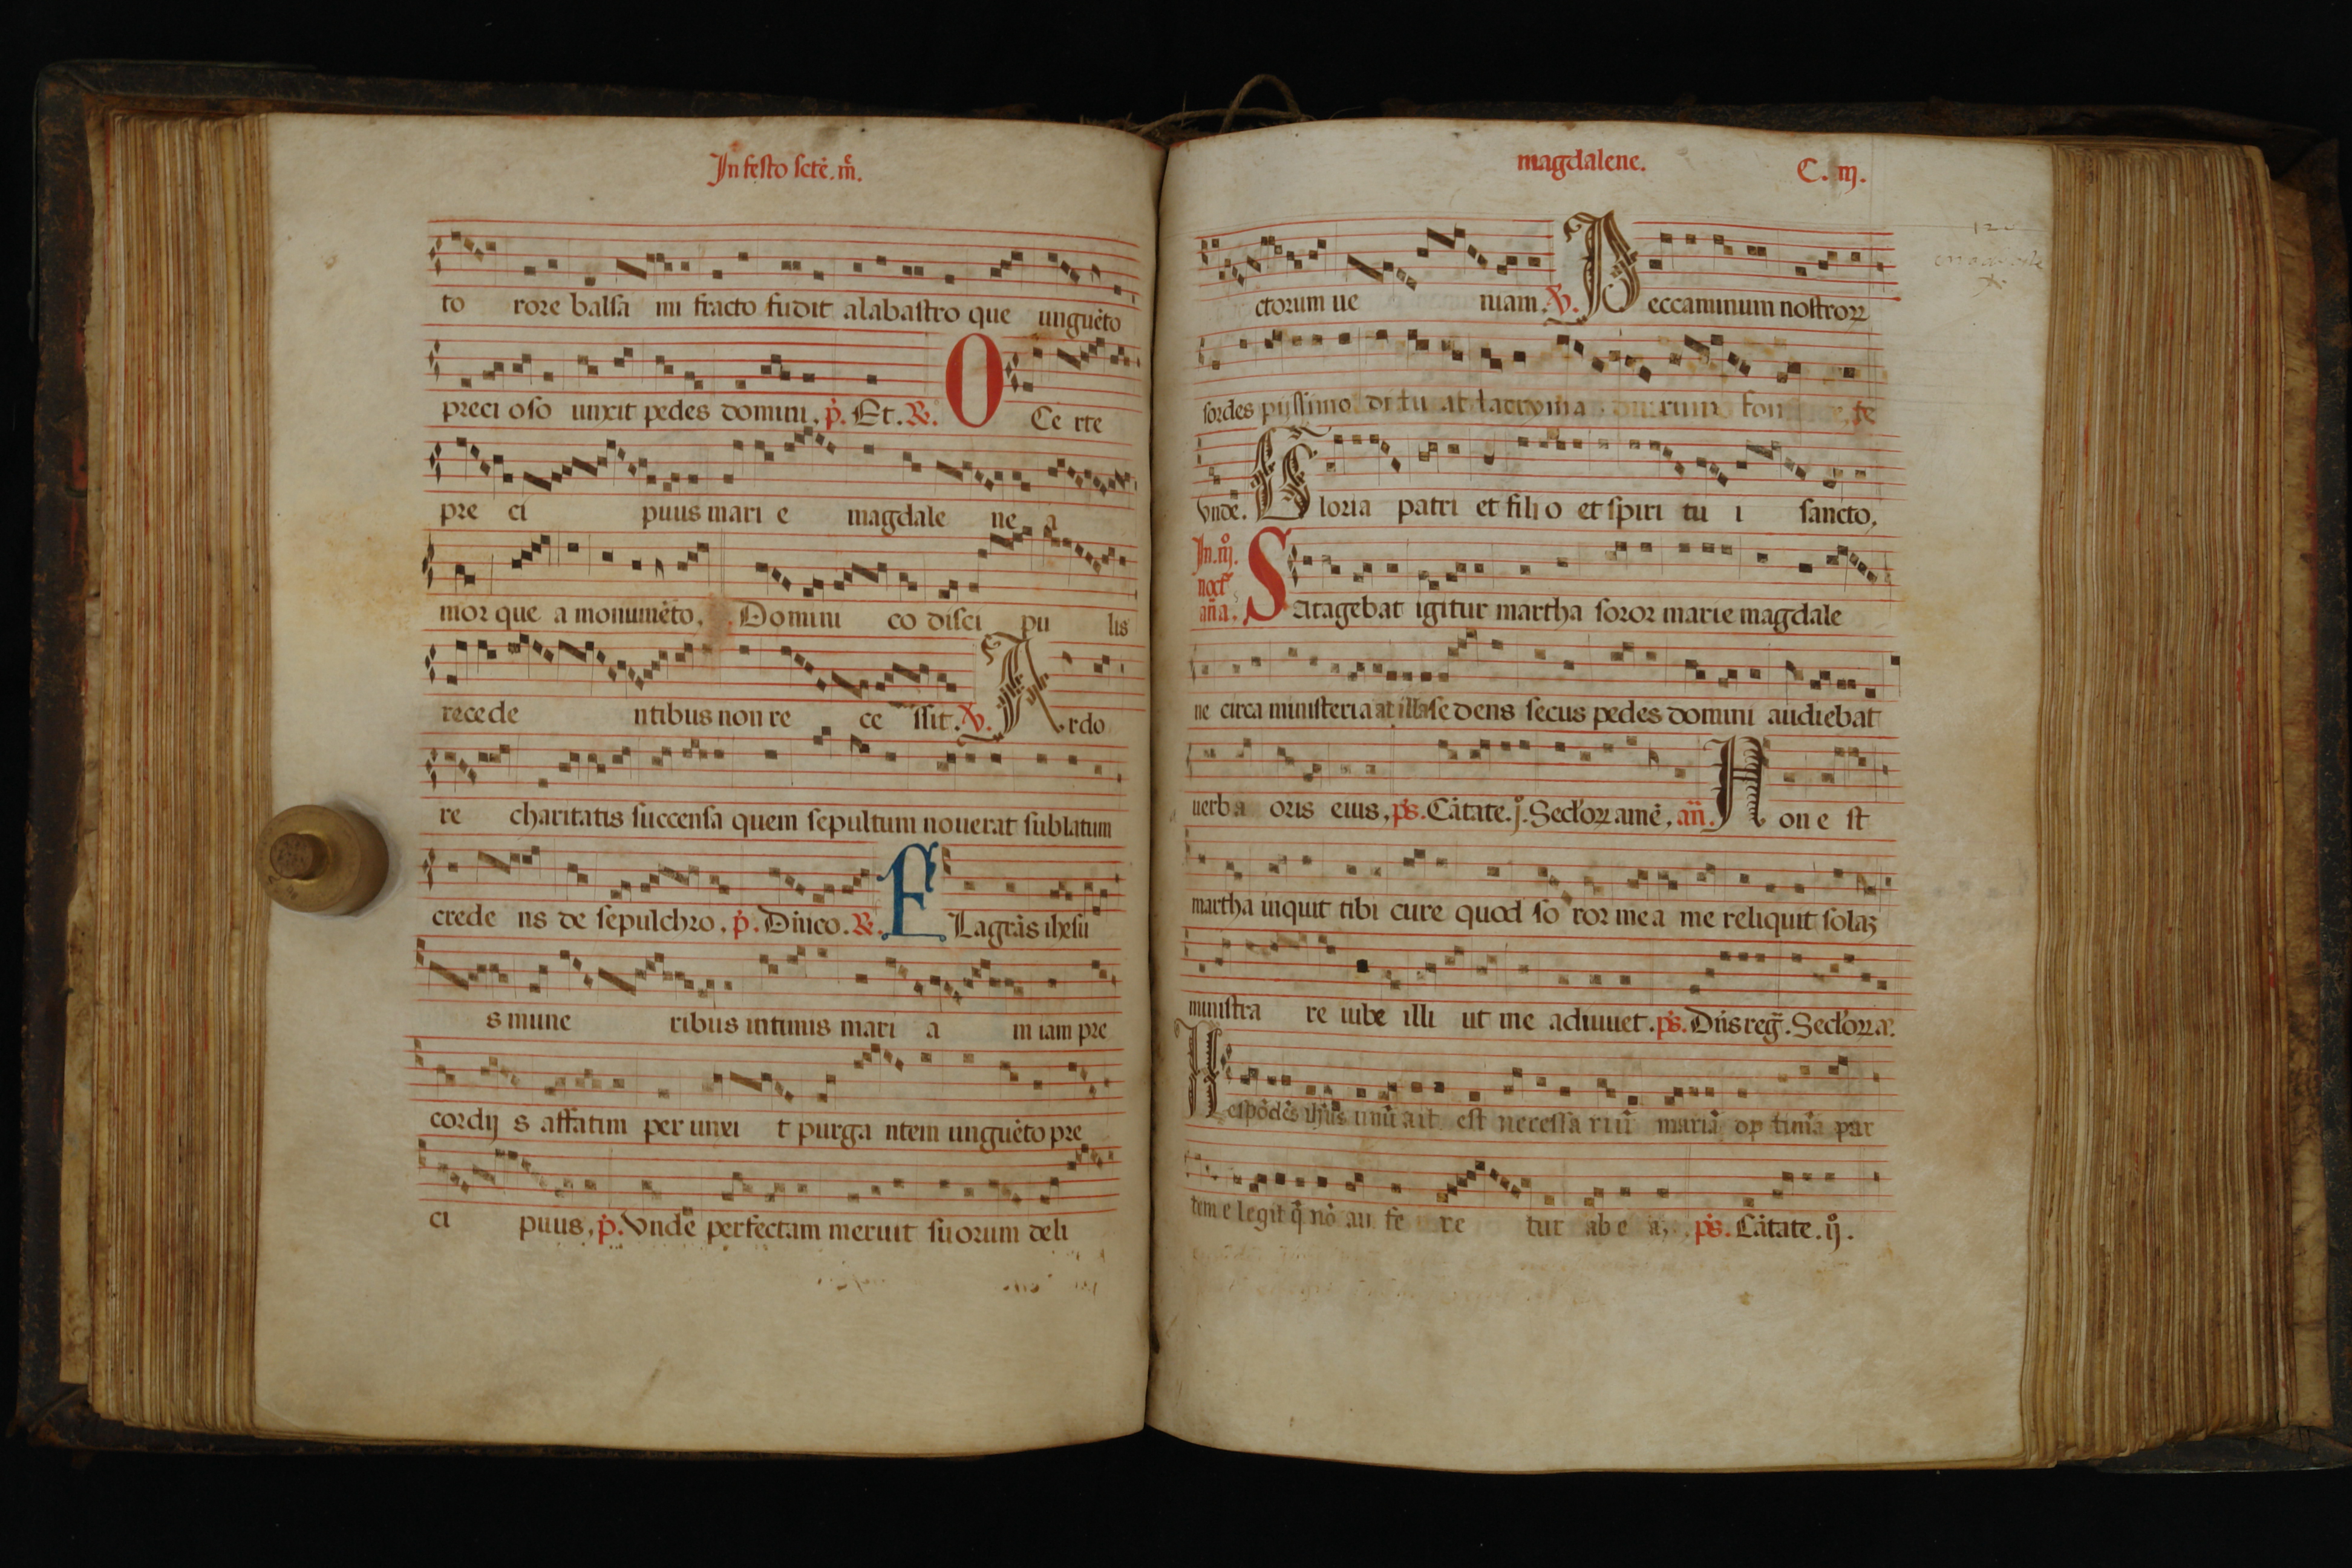 In festo scte. m.
to rore balsa mi fracto fudit alabastro que unguēto
preci oso unxit pedes domini, p. Et. R. O Ce rte
pre ci puus mari e magdale ne a
mor que a monumēto. Domini co disci pu lis
recede ntibus non re ce ssit. V. A rdo
re charitatis succensa quem sepultum nouerat sublatum
crede ns de sepulchro, p. Dñico. R. F Lagrās ihesu
s mune ribus intimis mari a m iam pre
cordij s affatim per unxi t purga ntem unguēto pre
ci puus, p. Vnde perfectam meruit suorum deli
magdalene. C. iij.
ctorum ue niam. V. P eccaminum nostroꝝ
sordes pijssimo di tu at lacryma fon te
Vnde. G loria patri et fili o et spiri tu i sancto,
In. iij. noct. aña. S atagebat igitur martha soror marie magdale
ne circa ministeria at illa sedens secus pedes domini audiebat
uerba oris eius, ps. Cātate. j. Sec'loꝝ amē, añ. N on e st
martha inquit tibi cure quod so ror mea me reliquit solaȝ
ministra re iube illi ut me adiuuet. ps. Dñs reg̃. Sec'loꝝ a.
R espōdēs ihus unū ait est necessa riū maria op timā par
tem e legit q̄ nō au fe re tur ab e a, ps. Cātate. ij.